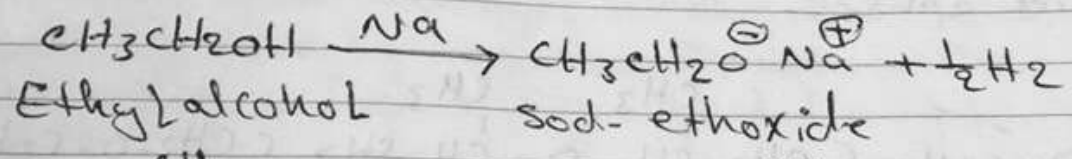 CH3CH2OH —Na→ CH3CH2O⊖ Na⊕ + ½H2
Ethyl alcohol sod- ethoxide